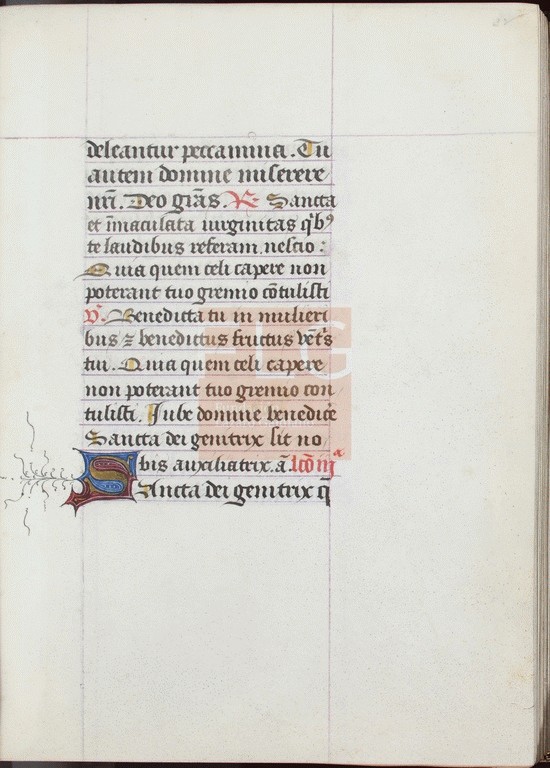 deleantur peccamina. Tu
autem domine miserere
nr̄i. Deo grās. R̷ Sancta
et īmaculata uirginitas qⁱbꝰ
te laudibus referam nescio :
Quia quem celi capere non
poterant tuo gremio cōtulisti
V̷. Benedicta tu in mulieri
bus ⁊ benedictus fructus vēt̄s
tui. Quia quem celi capere
non poterant tuo gremio con
tulisti. Jube domine benedic̄e
Sancta dei genitrix sit no
bis auxiliatrix. ā. lc̄o iijᵃ
SAncta dei genitrix q̄